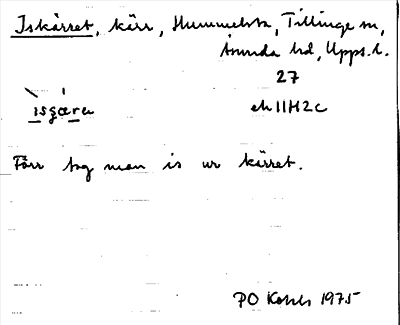 Iskärret, kärr, Hummelsta, Tillinge sn,
Åsunda hd, Upps.l.
27
ìsçæ̀ra ek 11H2c
Förr tog man is ur kärret.
PO 1975